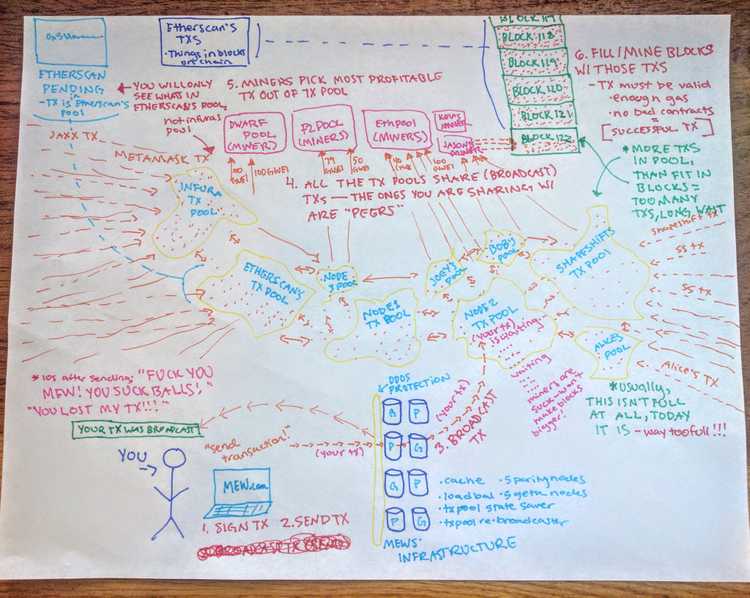 ETHERSCAN
PENDING
- TX is in Etherscan's
Pool
Etherscan's
TXS
- Things in blocks
on chain
YOU WILL ONLY
SEE WHATS IN
ETHERSCAN'S POOL,
not infuras
pool
5. MINERS PICK MOST PROFITABLE
TX OUT OF TX POOL
DWARF
POOL
(MINER)
F2POOL
(MINERS)
Ethpool
(MINERS)
KOVAS
MINER
JASONS
MINER
BLOCK 117
BLOCK 118
BLOCK 119
BLOCK 120
BLOCK 121
BLOCK 122
6. FILL/MINE BLOCKS
WITHOSE TXS
- TX must be valid
- enough gas
- no bad contracts
[= SUCCESSFUL TX]
*MORE TXS
IN POOL,
THAN FIT IN
BLOCKS =
TOO MANY
TXS, LONG WAIT
JAXX TX
METAMASK TX
100 GWEI
50 GWEI
4. ALL THE TX POOLS SHARE (BROADCAST)
TXs — THE ONES YOU ARE SHARING W/
ARE "PEERS"
INFURA
TX
POOL
ETHERSCAN'S
TX POOL
NODE
3 POOL
NODE 1
TX POOL
JOEY'S
POOL
BOB'S
POOL
NODE 2
TX POOL
(your tx)
is waiting
waiting
miners are
suck-won't
make blocks
bigger!
SHAPESHIFTS
TX POOL
ALICES
POOL
shapeshift tx
SS TX
SS TX
Alice's TX
*Usually,
THIS ISN'T FULL
AT ALL, TODAY
IT IS - way too full!!!
*10s after sending: "FUCK YOU
MEW! YOU SUCK BALLS!,"
"YOU LOST MY TX!!!"
YOUR TX WAS BROADCAST
YOU
"send
transaction!"
(your tx)
MEW.com
1. SIGN TX 2. SEND TX
DDOS
PROTECTION
P
P
G
P
G
P
G
3. BROADCAST
TX
(your tx)
• cache • 5 parity nodes
• load bal • 5 geth nodes
• txpool state saver
• txpool re-broadcaster
MEWS'
INFRASTRUCTURE